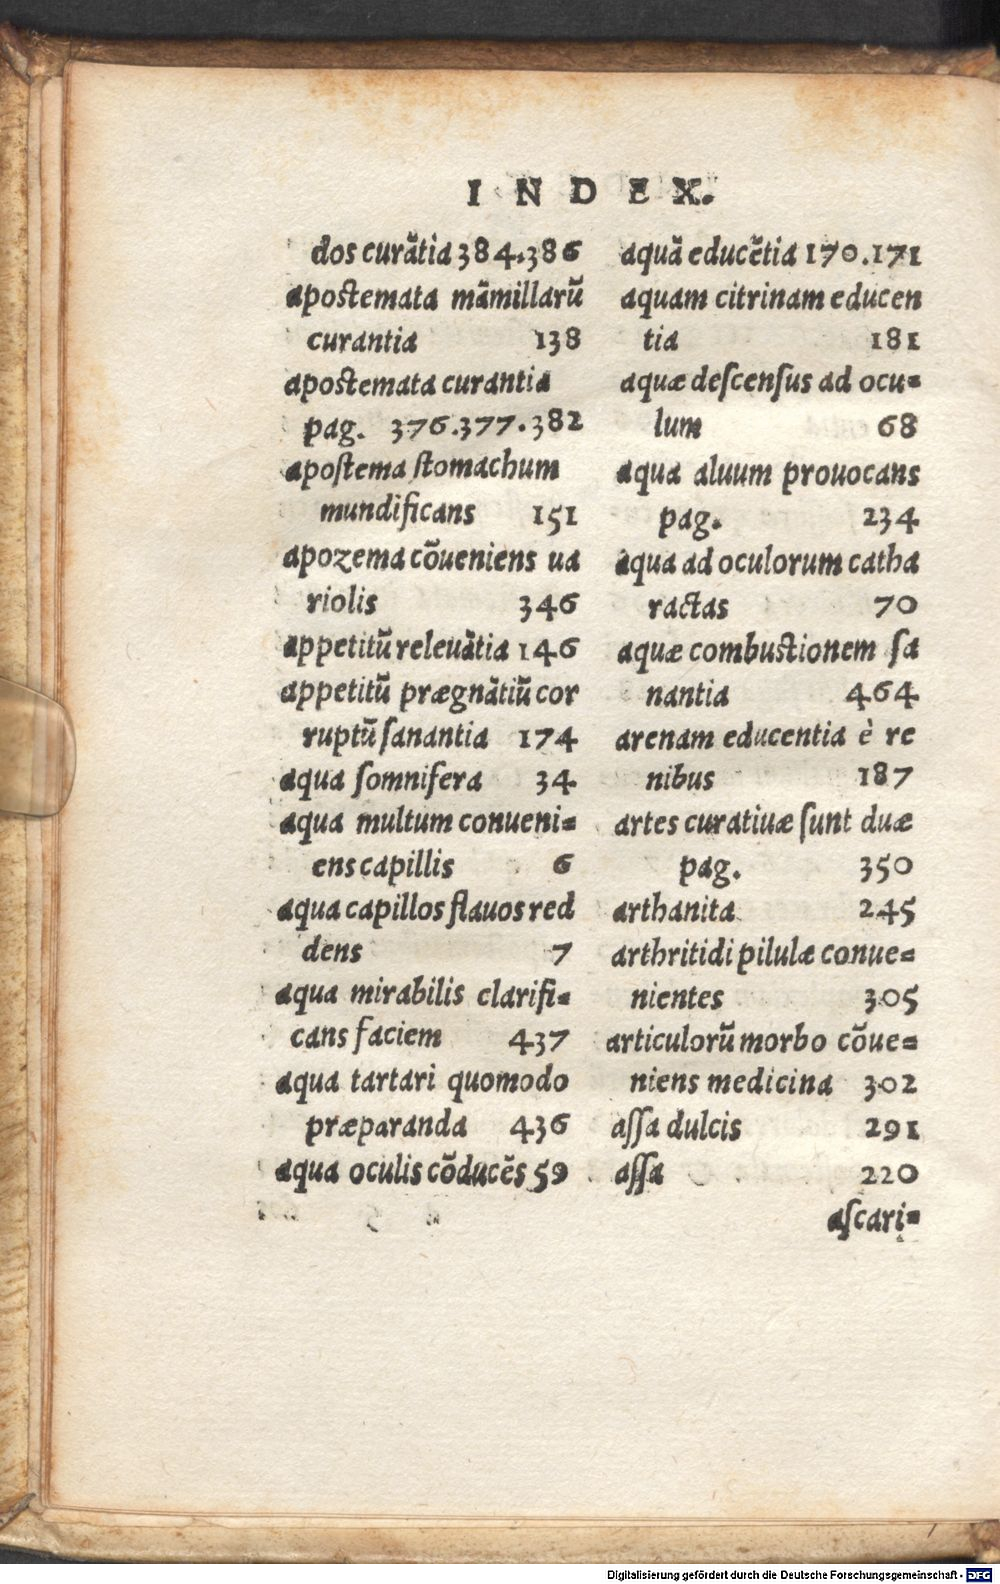 INDEX.
dos curãtia 384.386
apostemata mãmillarũ
curantia 138
apostemata curantia
pag. 376.377.382
apoſtema ſtomachum
mundificans 151
apozema cõueniens ua
riolis 346
appetitũ releuãtia 146
appetitũ prægnãtiũ cor
ruptũ ſanantia 174
aqua ſomnifera 34
aqua multum conueni=
ens capillis 6
aqua capillos flauos red
dens 7
aqua mirabilis clarifi=
cans faciem 437
aqua tartari quomodo
præparanda 436
aqua oculis cõducẽs 59
aquã educẽtia 170.171
aquam citrinam educen
tia 181
aquæ deſcenſus ad ocu=
lum 68
aqua aluum prouocans
pag. 234
aqua ad oculorum catha
ractas 70
aquæ combustionem ſa
nantia 464
arenam educentia è re
nibus 187
artes curatiuæ ſunt duæ
pag. 350
arthanita 245
arthritidi pilulæ conue=
nientes 305
articulorũ morbo cõue=
niens medicina 302
aſſa dulcis 291
aſſa 220
aſcari=
Digitalisierung gefördert durch die Deutsche Forschungsgemeinschaft - DFG